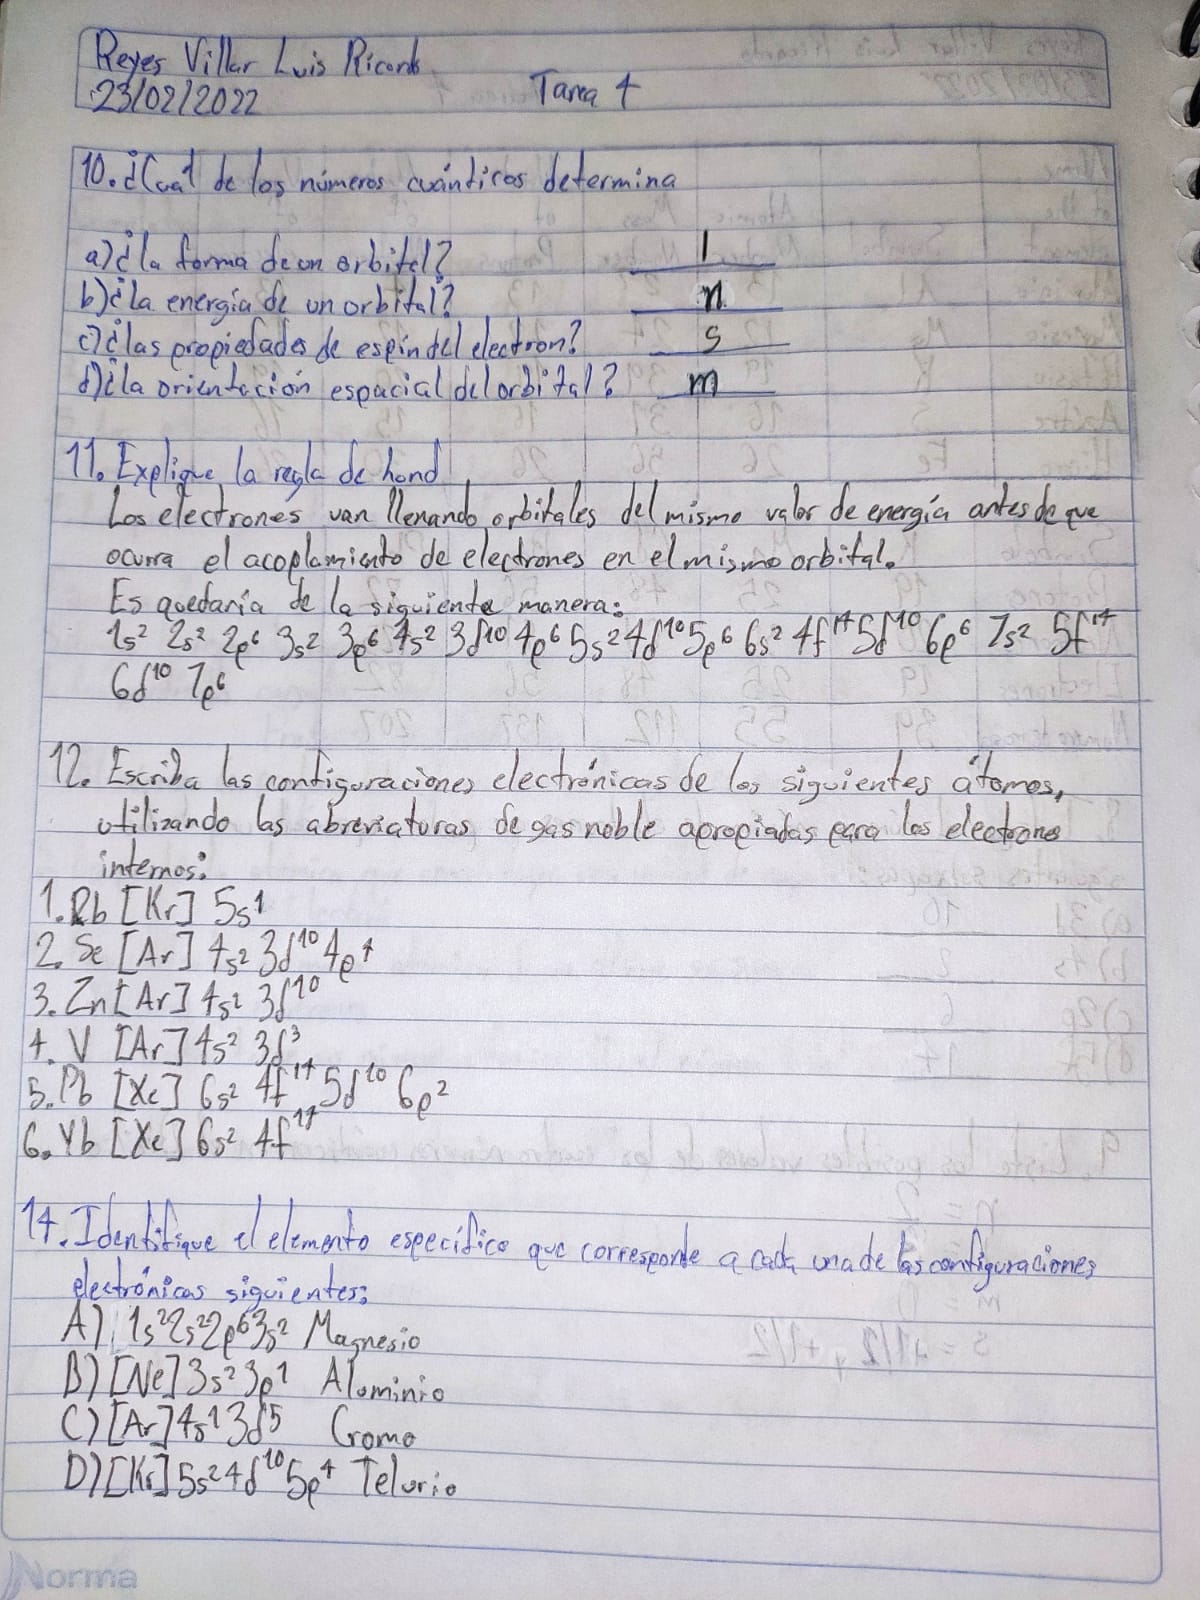 Reyes Villar Luis Ricardo
23/02/2022 Tarea 4
10. ¿Cual de los números cuánticos determina
a) ¿la forma de un orbital? l
b) ¿la energía de un orbital? n
c) ¿las propiedades de espin del electron? s
d) ¿la orientación espacial del orbital? m
11. Explique la regla de hond
Los electrones van llenando orbitales del mismo valor de energía antes de que
ocurra el acoplamiento de electrones en el mismo orbital.
Es quedaría de la siguiente manera:
1s² 2s² 2p⁶ 3s² 3p⁶ 4s² 3d¹⁰ 4p⁶ 5s² 4d¹⁰ 5p⁶ 6s² 4f¹⁴ 5d¹⁰ 6p⁶ 7s² 5f¹⁴
6d¹⁰ 7p⁶
12. Escriba las configuraciones electrónicas de los siguientes átomos,
utilizando las abreviaturas de gas noble apropiadas para los electrones
internos:
1. Rb [Kr] 5s¹
2. Se [Ar] 4s² 3d¹⁰ 4p⁴
3. Zn [Ar] 4s² 3d¹⁰
4. V [Ar] 4s² 3d³
5. Pb [Xe] 6s² 4f¹⁴ 5d¹⁰ 6p²
6. Yb [Xe] 6s² 4f¹⁴
14. Identifique el elemento específico que corresponde a cada una de las configuraciones
electrónicas siguientes:
A) 1s² 2s² 2p⁶ 3s² Magnesio
B) [Ne] 3s² 3p¹ Aluminio
C) [Ar] 4s¹ 3d⁵ Cromo
D) [Kr] 5s² 4d¹⁰ 5p⁴ Telurio
Norma